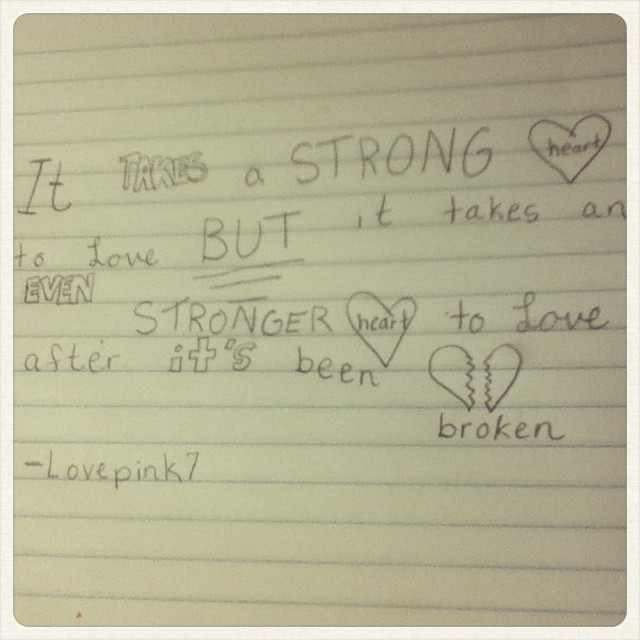 It TAKES a STRONG heart
to Love BUT it takes an
EVEN
STRONGER heart to Love
after it's been
broken
-Lovepink7